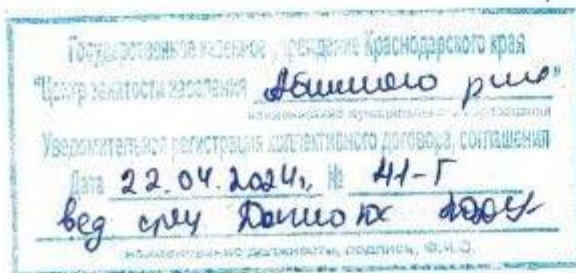 Государственное казенное учреждение Краснодарского края
"Центр занятости населения Абинского р-на"
наименование муниципального образования
Уведомительная регистрация коллективного договора, соглашения
Дата 22.04.2024г. № 41-Г
вед спец
наименование должности, подпись, Ф.И.О.